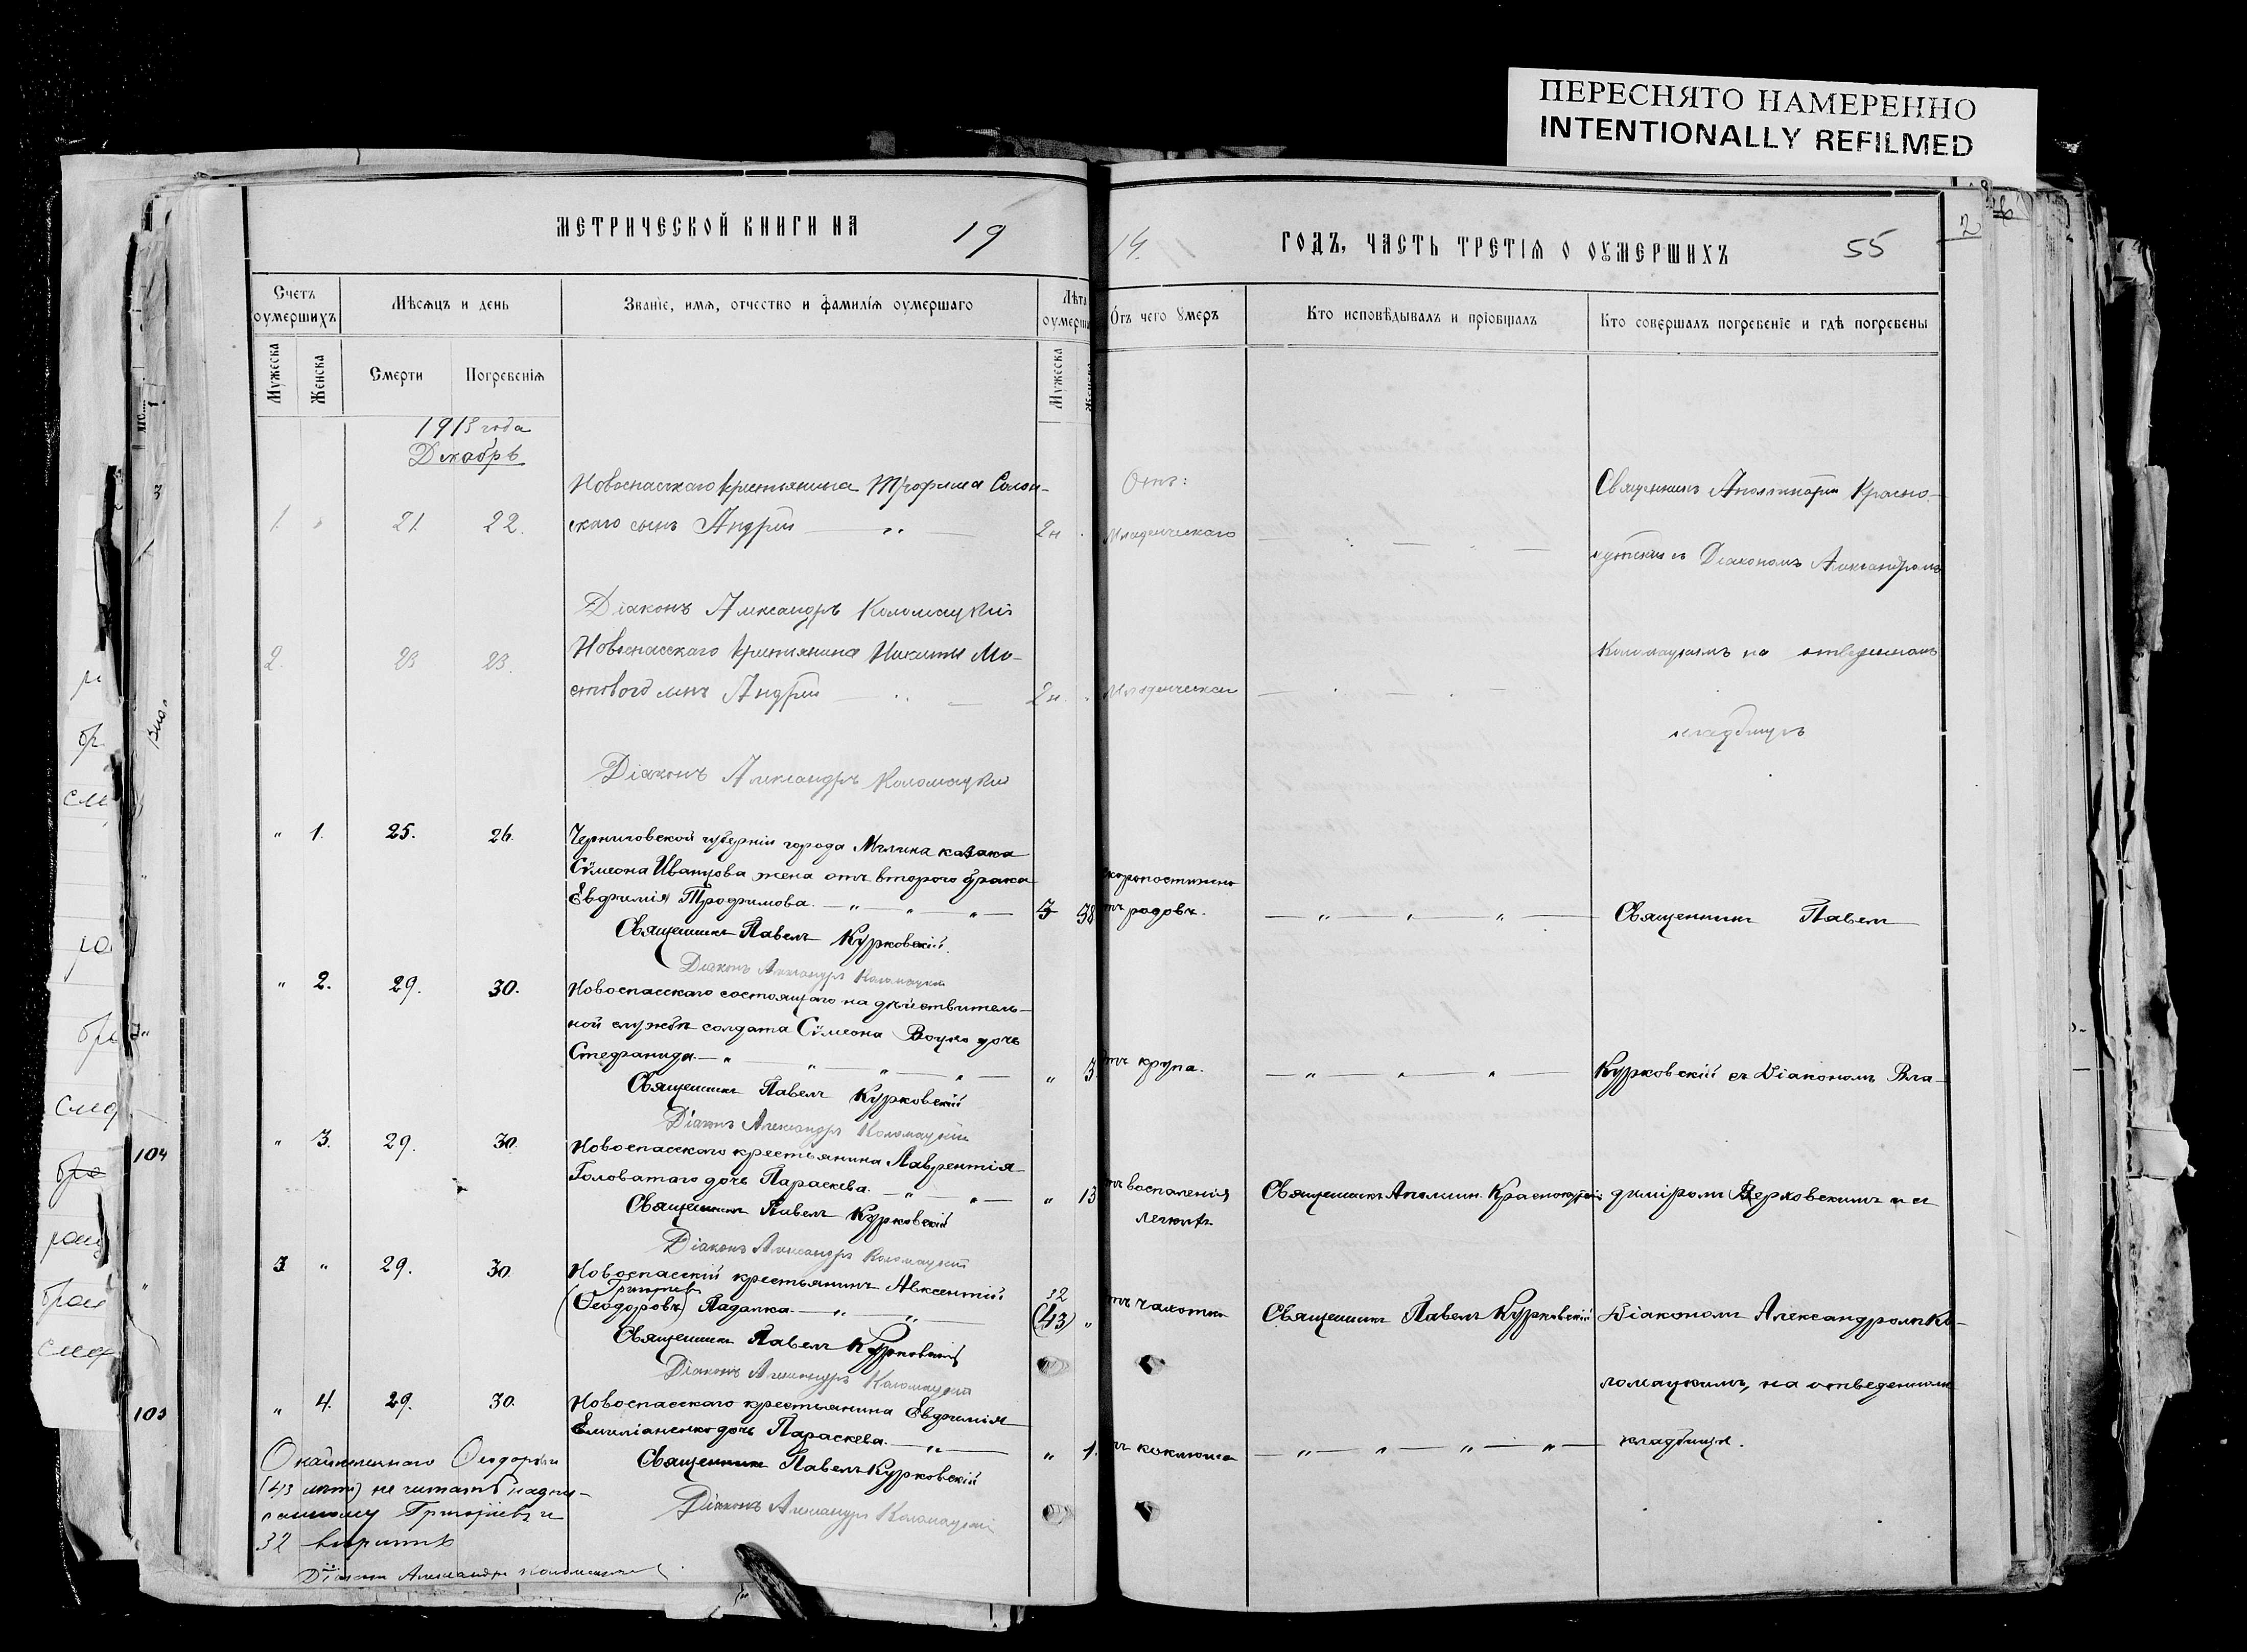 ПЕРЕСНЯТО НАМЕРЕННО
INTENTIONALLY REFILMED
МЕТРИЧЕСКОЙ КНИГИ НА 19
Счетъ оумершихъ
Мѣсяцъ и день
Званіе, имя, отчество и фамилія оумершаго
Лѣта
Мужеска
Женска
Смерти
Погребенія
Мужеска
1913 года
Декабрь
Новоспасскаго крестьянина Трофима
скаго сынъ Андрей
1 21. 22. 2н
Діаконъ Александръ Коломацкій
Новоспасскаго крестьянина Никиты Мо-
стового сынъ Андрей
2. 23 23. 2н.
Діаконъ Александръ Коломацкій
" 1. 25. 26. Черниговской губерніи города Мглина казака
Сѵмеона Иванцова жена отъ второго брака
Евфимія Трофимова. — " — " — " — 38
Священникъ Павелъ Курковскій.
Діаконъ Александръ Коломацкій
" 2. 29. 30. Новоспасскаго состоящаго на дѣйствитель-
ной службѣ солдата Сѵмеона Воцко дочь
Стефанида. — " — " — " — " — " 3
Священникъ Павелъ Курковскій
Діаконъ Александръ Коломацкій
" 3. 29. 30. Новоспасскаго крестьянина Лаврентія
Головатаго дочь Параскева. — " — " — " 13
Священникъ Павелъ Курковскій
Діаконъ Александръ Коломацкій
3 " 29. 30. Новоспасскій крестьянинъ Авксентій
Григорьев 32
(Ѳеодоровъ) Падалка. — " — " — (43) "
Священникъ Павелъ Курковскій
Діаконъ Александръ Коломацкій
" 4. 29. 30. Новоспасскаго крестьянина Евфимія
Емиліаненко дочь Параскева. — " — " 1.
Священникъ Павелъ Курковскій
Діаконъ Александръ Коломацкій
Ѳеодоровъ
(43 лѣтъ) не читать надпи-
санному Григоріевъ и
32 вѣрить
Діаконъ Александръ Коломацкій
14. ГОДЪ, ЧАСТЬ ТРЕТІЯ О ОУМЕРШИХЪ 55
2
Отъ чего умеръ
Кто исповѣдывалъ и пріобщалъ
Кто совершалъ погребеніе и гдѣ погребены
Отъ:
Младенческаго
Священникъ Аполлинарій Красно-
кутскій съ Діакономъ Александромъ
Младенческаго
Коломацкимъ на отведенномъ
кладбищѣ
скоропостижно
родовъ. — " — " — " — Священникъ Павелъ
крупа. — " — " — " — Курковскій съ Діакономъ Вла-
воспаленія
легкихъ
Священникъ Аполлин. Краснокутскій
диміромъ Верховскимъ и съ
чахотки
Священникъ Павелъ Курковскій
Діакономъ Александромъ Ко-
ломацкимъ, на отведенномъ
коклюша — " — " — " — " — кладбищѣ.
104
105